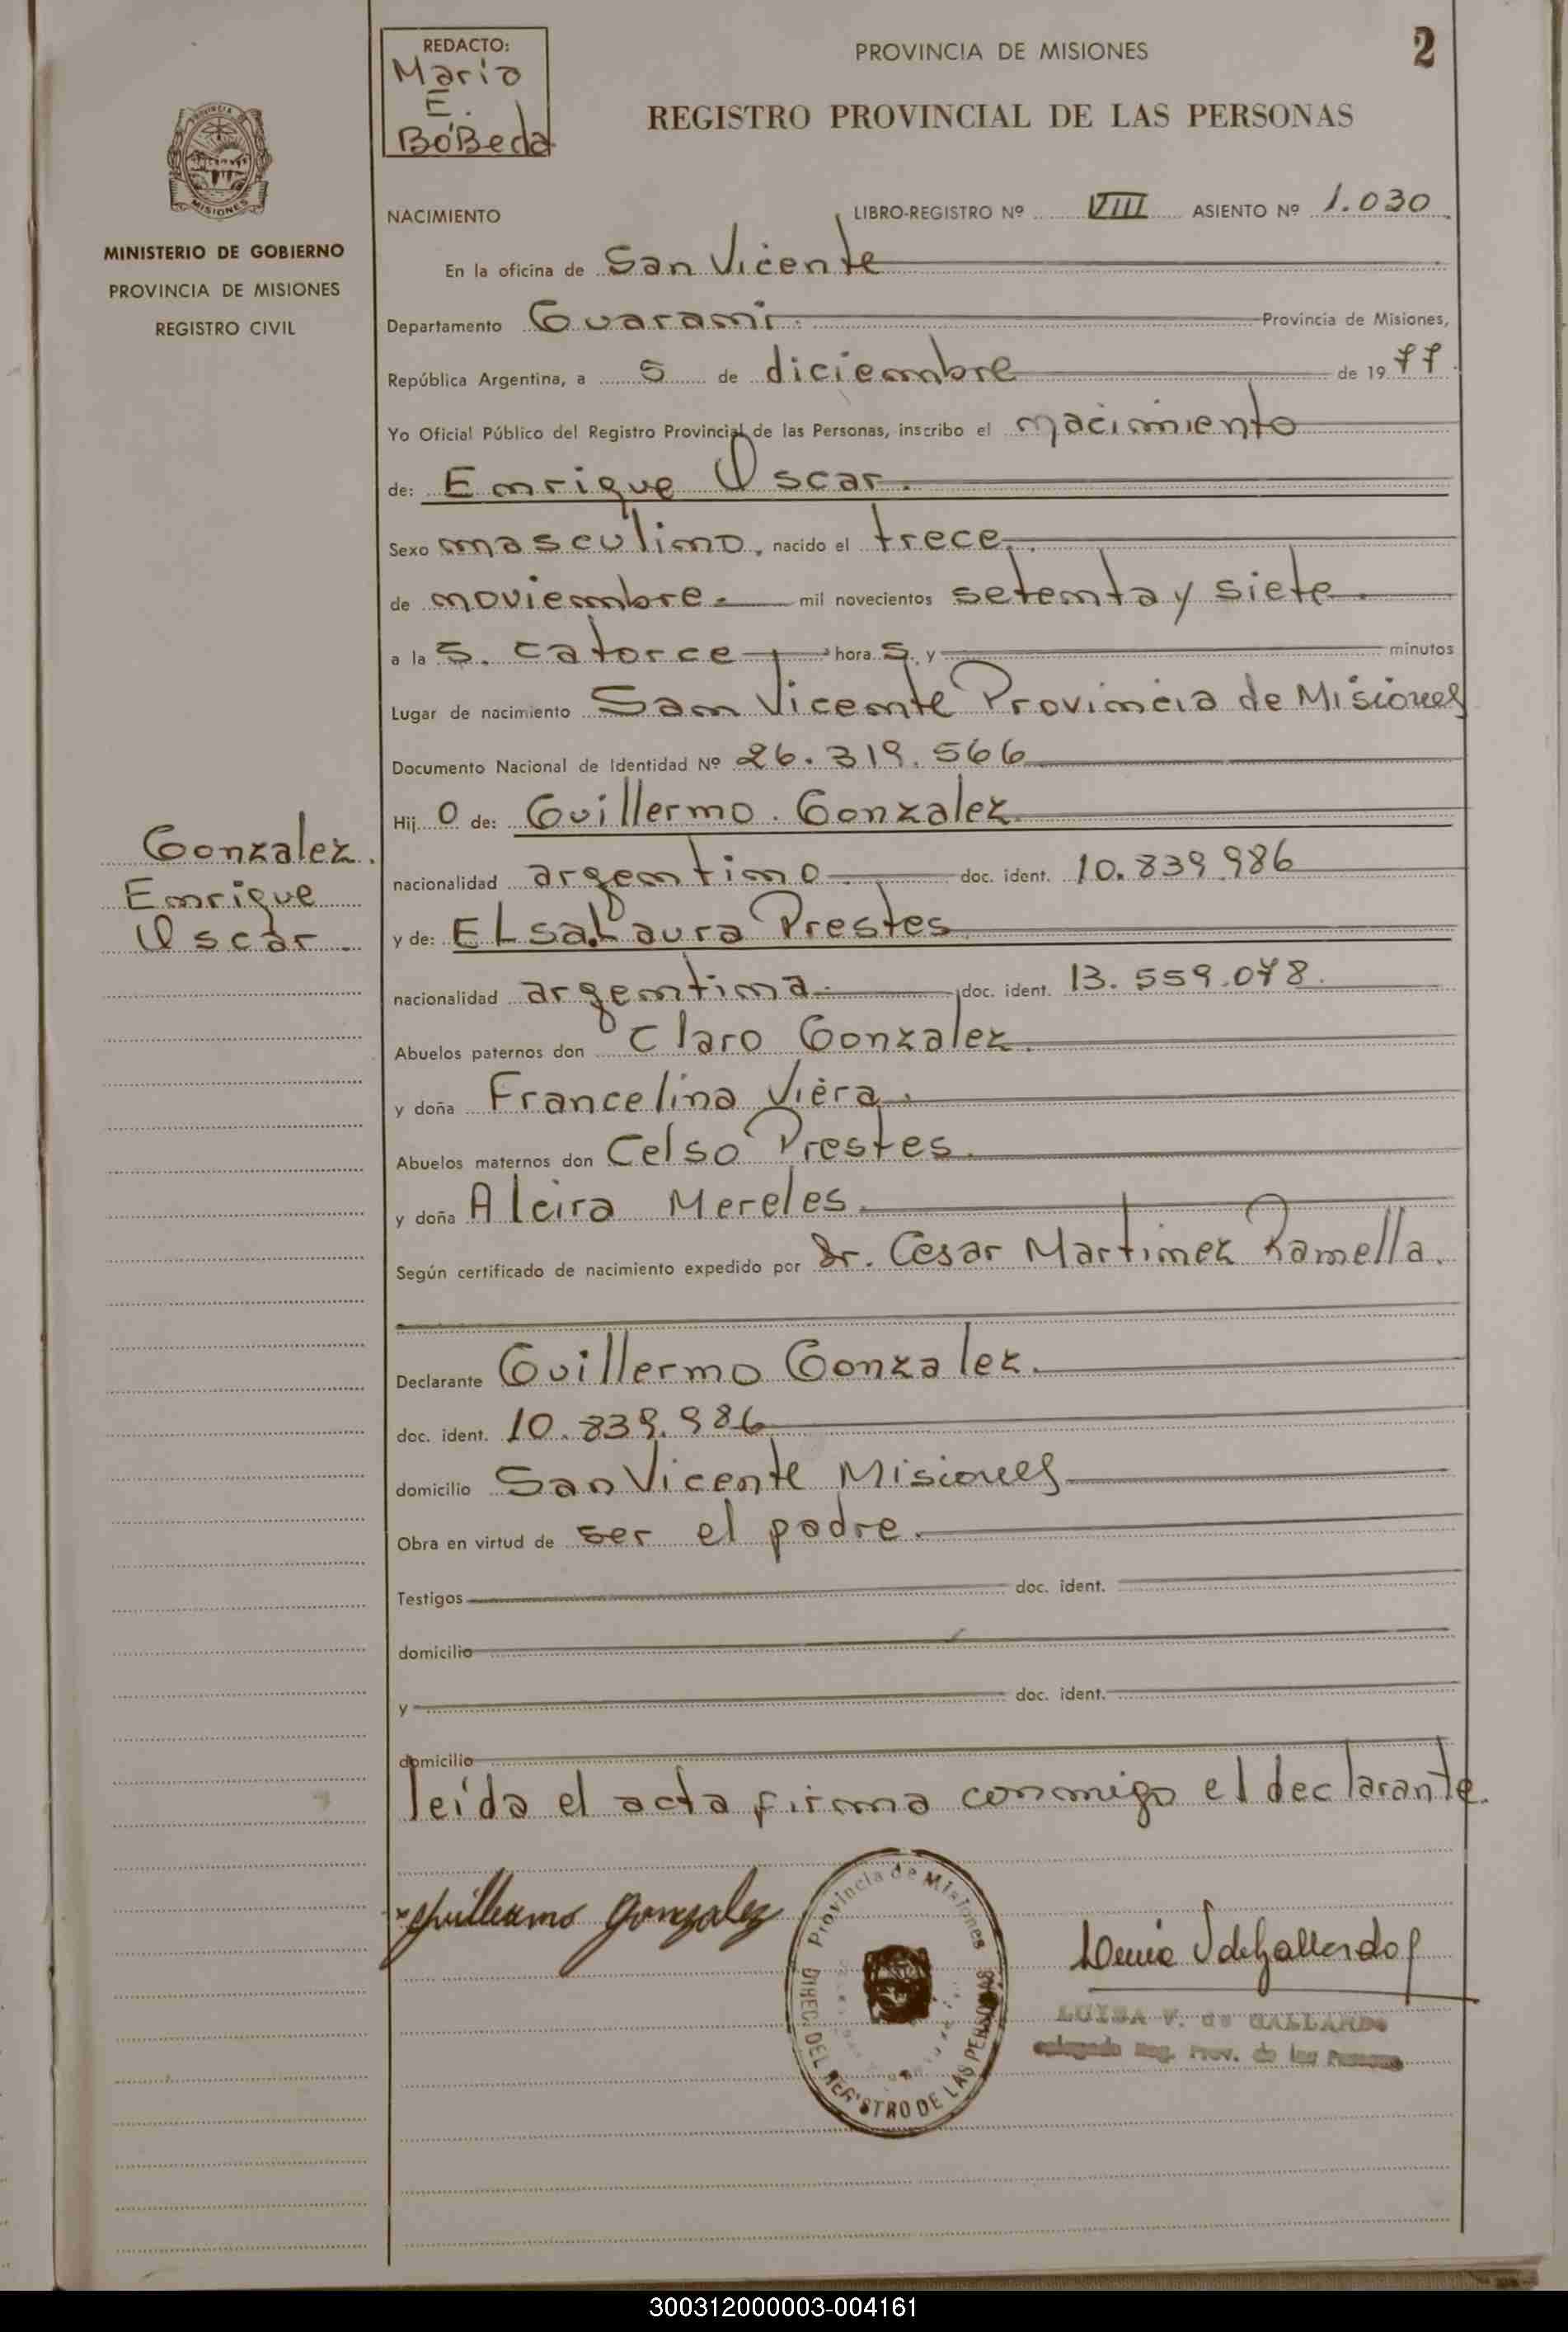 REDACTO:
Mario
E.
BóBeda
PROVINCIA DE MISIONES
2
REGISTRO PROVINCIAL DE LAS PERSONAS
PROVINCIA
MISIONES
MINISTERIO DE GOBIERNO
PROVINCIA DE MISIONES
REGISTRO CIVIL
NACIMIENTO
LIBRO-REGISTRO Nº VIII ASIENTO Nº 1.030
En la oficina de San Vicente
Departamento Guarani. Provincia de Misiones,
República Argentina, a 5 de diciembre de 1977
Yo Oficial Público del Registro Provincial de las Personas, inscribo el nacimiento
de: Enrique Oscar.
Sexo masculino, nacido el trece
de noviembre. mil novecientos setenta y siete.
a la s. catorce hora s. y minutos
Lugar de nacimiento San Vicente Provincia de Misiones
Documento Nacional de Identidad Nº 26.319.566
Hij o de: Guillermo. Gonzalez
nacionalidad argentino doc. ident. 10.839.986
y de: ELsa Laura Prestes
nacionalidad argentina doc. ident. 13.559.078.
Abuelos paternos don Claro Gonzalez.
y doña Francelina Viera.
Abuelos maternos don Celso Prestes.
y doña Alcira Mereles.
Según certificado de nacimiento expedido por Dr. Cesar Martinez Ramella.
Declarante Guillermo Gonzalez.
doc. ident. 10.839.986
domicilio San Vicente Misiones
Obra en virtud de ser el padre.
Testigos doc. ident.
domicilio
y doc. ident.
domicilio
leída el acta firma conmigo el declarante.
Gonzalez.
Enrique
Oscar.
Guillermo Gonzalez
Provincia de Misiones
DIREC. DEL REGISTRO DE LAS PERSONAS
LUISA V. de GALLARDO
Reg. Prov. de las Personas
300312000003-004161